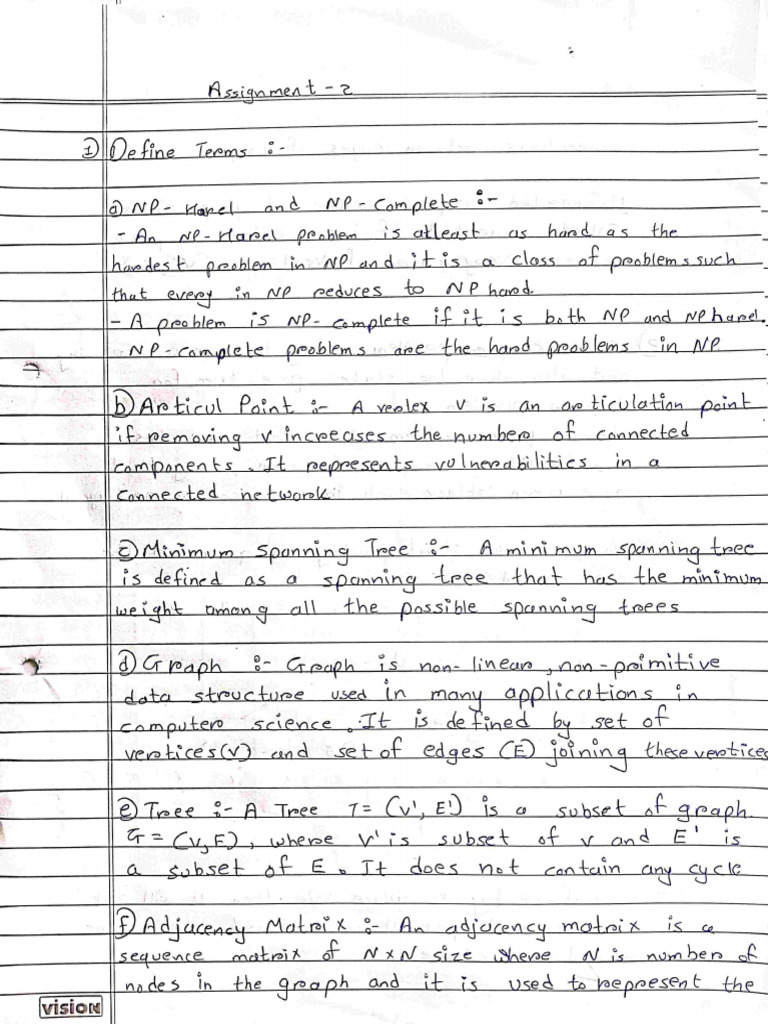 Assignment - 2
1) Define Terms :-
a) NP-Hard and NP-Complete :-
- An NP-Hard problem is atleast as hard as the
hardest problem in NP and it is a class of problems such
that every in NP reduces to NP hard.
- A problem is NP-complete if it is both NP and NP hard.
NP-complete problems are the hard problems in NP
b) Articul Point :- A vertex v is an articulation point
if removing v increases the number of connected
components. It represents vulnerabilities in a
connected network
c) Minimum Spanning Tree :- A minimum spanning tree
is defined as a spanning tree that has the minimum
weight among all the possible spanning trees
d) Graph :- Graph is non-linear, non-primitive
data structure used in many applications in
computer science. It is defined by set of
vertices(V) and set of edges (E) joining these vertices
e) Tree :- A Tree T = (V', E') is a subset of graph.
G = (V, E), where V' is subset of V and E' is
a subset of E. It does not contain any cycle
f) Adjacency Matrix :- An adjacency matrix is a
sequence matrix of N x N size where N is number of
nodes in the graph and it is used to represent the
vision